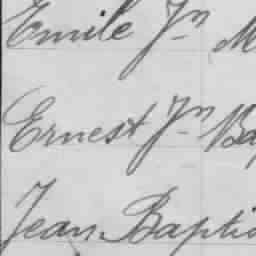 Emile Jn M
Ernest Jn Ba
Jean Baptis